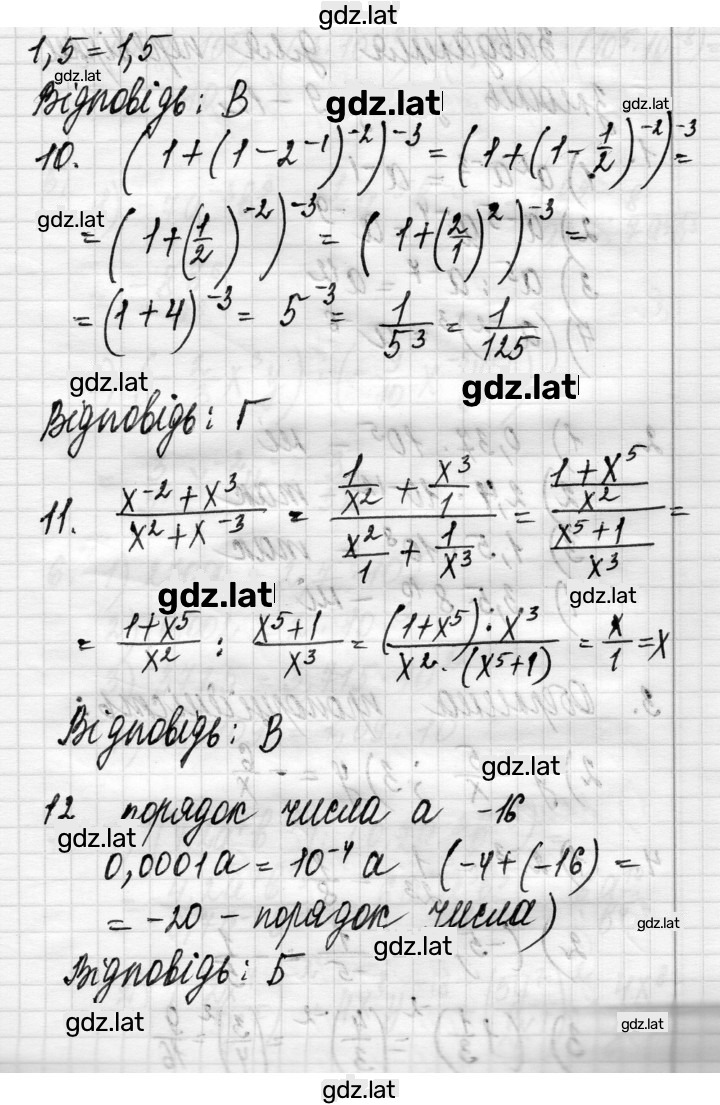 gdz.lat
1,5 = 1,5
gdz.lat
Відповідь: В
gdz.lat
gdz.lat
10. (1+(1-2⁻¹)⁻²)⁻³ = (1+(1-1/2)⁻²)⁻³ =
gdz.lat
= (1+(1/2)⁻²)⁻³ = (1+(2/1)²)⁻³ =
= (1+4)⁻³ = 5⁻³ = 1/5³ = 1/125
gdz.lat
gdz.lat
Відповідь: Г
11. (x⁻²+x³)/(x²+x⁻³) = (1/x² + x³/1)/(x²/1 + 1/x³) = ((1+x⁵)/x²)/((x⁵+1)/x³) =
gdz.lat
gdz.lat
= (1+x⁵)/x² : (x⁵+1)/x³ = ((1+x⁵)·x³)/(x²·(x⁵+1)) = x/1 = x
Відповідь: В
gdz.lat
12 порядок числа а -16
gdz.lat
0,0001а = 10⁻⁴а (-4+(-16) =
= -20 - порядок числа)
gdz.lat
gdz.lat
Відповідь: Б
gdz.lat
gdz.lat
gdz.lat